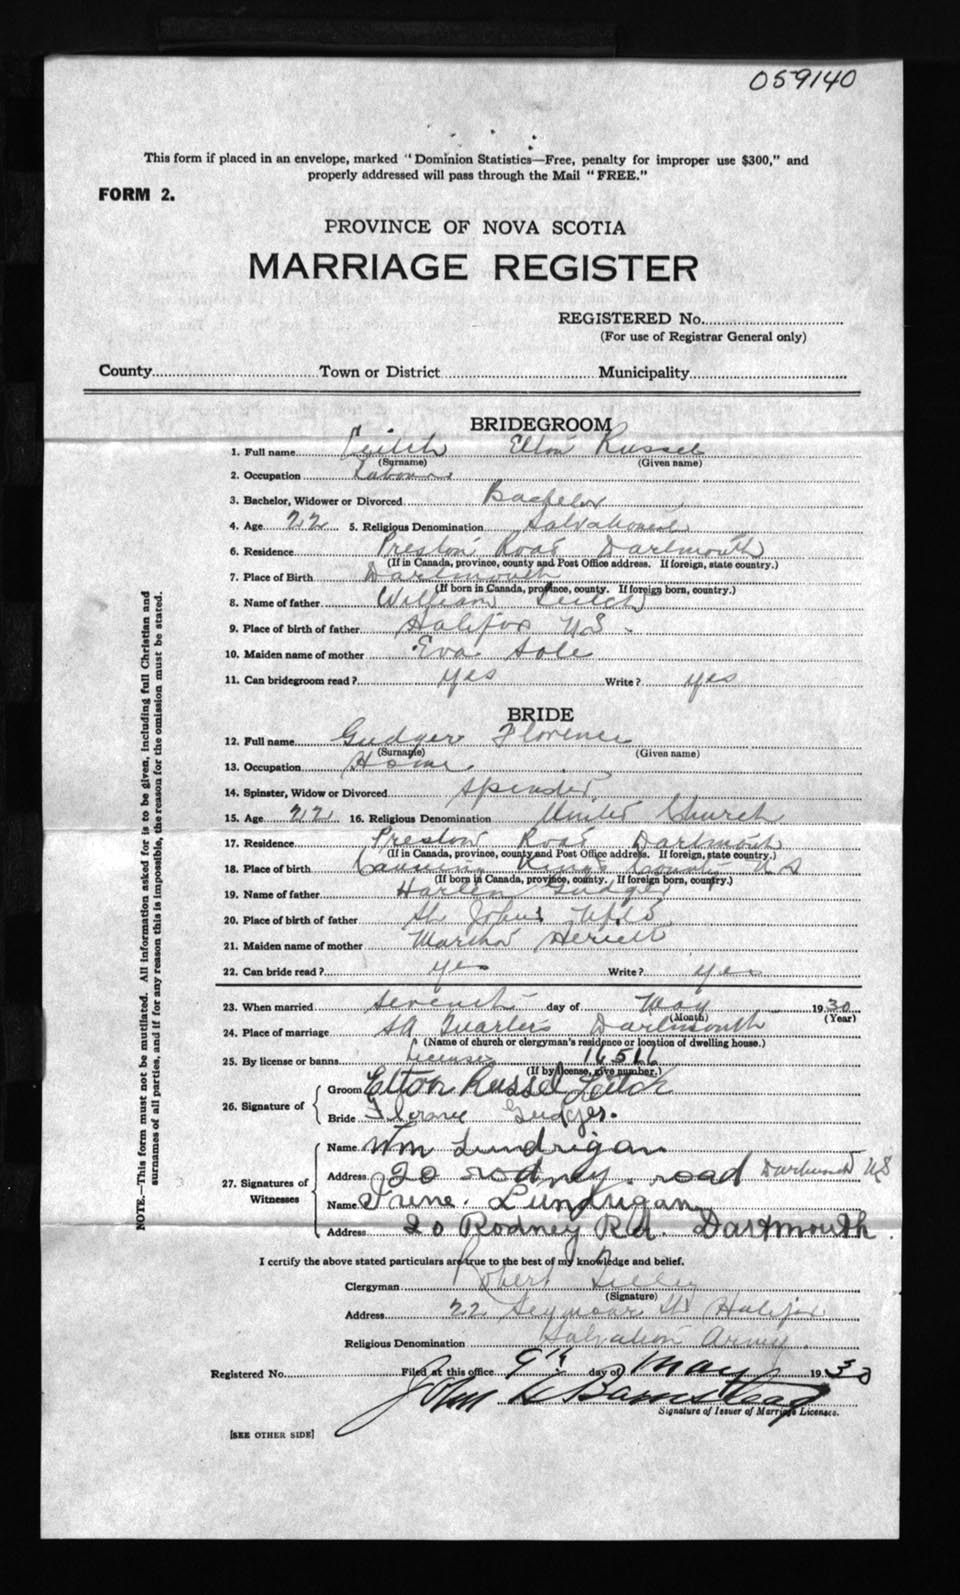 059140
This form if placed in an envelope, marked "Dominion Statistics—Free, penalty for improper use $300," and
properly addressed will pass through the Mail "FREE."
FORM 2.
PROVINCE OF NOVA SCOTIA
MARRIAGE REGISTER
REGISTERED No.
(For use of Registrar General only)
County Town or District Municipality
BRIDEGROOM
1. Full name Leitch Elton Russel
(Surname) (Given name)
2. Occupation Labourer
3. Bachelor, Widower or Divorced Bachelor
4. Age 22 5. Religious Denomination Salvationist
6. Residence Preston Road Dartmouth
(If in Canada, province, county and Post Office address. If foreign, state country.)
7. Place of Birth Dartmouth
(If born in Canada, province, county. If foreign born, country.)
8. Name of father William Leitch
9. Place of birth of father Halifax N.S.
10. Maiden name of mother Eva Sole
11. Can bridegroom read? yes Write? yes
BRIDE
12. Full name Gudger Florence
(Surname) (Given name)
13. Occupation Home
14. Spinster, Widow or Divorced Spinster
15. Age 22 16. Religious Denomination United Church
17. Residence Preston Road Dartmouth
(If in Canada, province, county and Post Office address. If foreign, state country.)
18. Place of birth Canning Kings County N S
(If born in Canada, province, county. If foreign born, country.)
19. Name of father Harlen Gudger
20. Place of birth of father St Johns Nfld
21. Maiden name of mother Martha
22. Can bride read? yes Write? yes
23. When married Seventh day of May 1930
(Month) (Year)
24. Place of marriage SA Quarters Dartmouth
(Name of church or clergyman's residence or location of dwelling house.)
25. By license or banns License 16516
(If by license, give number.)
26. Signature of Groom Elton Russel Leitch
Bride Florence Gudger.
27. Signatures of Witnesses Name Wm Lundrigan
Address 20 rodney road Dartmouth NS
Name Irene Lundrigan
Address 20 Rodney Rd. Dartmouth.
I certify the above stated particulars are true to the best of my knowledge and belief.
Clergyman Robert
(Signature)
Address 22 Seymour St Halifax
Religious Denomination Salvation Army.
Registered No. Filed at this office 9th day of May 1930
John H Barnstead
Signature of Issuer of Marriage Licenses.
[SEE OTHER SIDE]
NOTE.—This form must not be mutilated. All information asked for is to be given, including full Christian and
surnames of all parties, and if for any reason this is impossible, the reason for the omission must be stated.